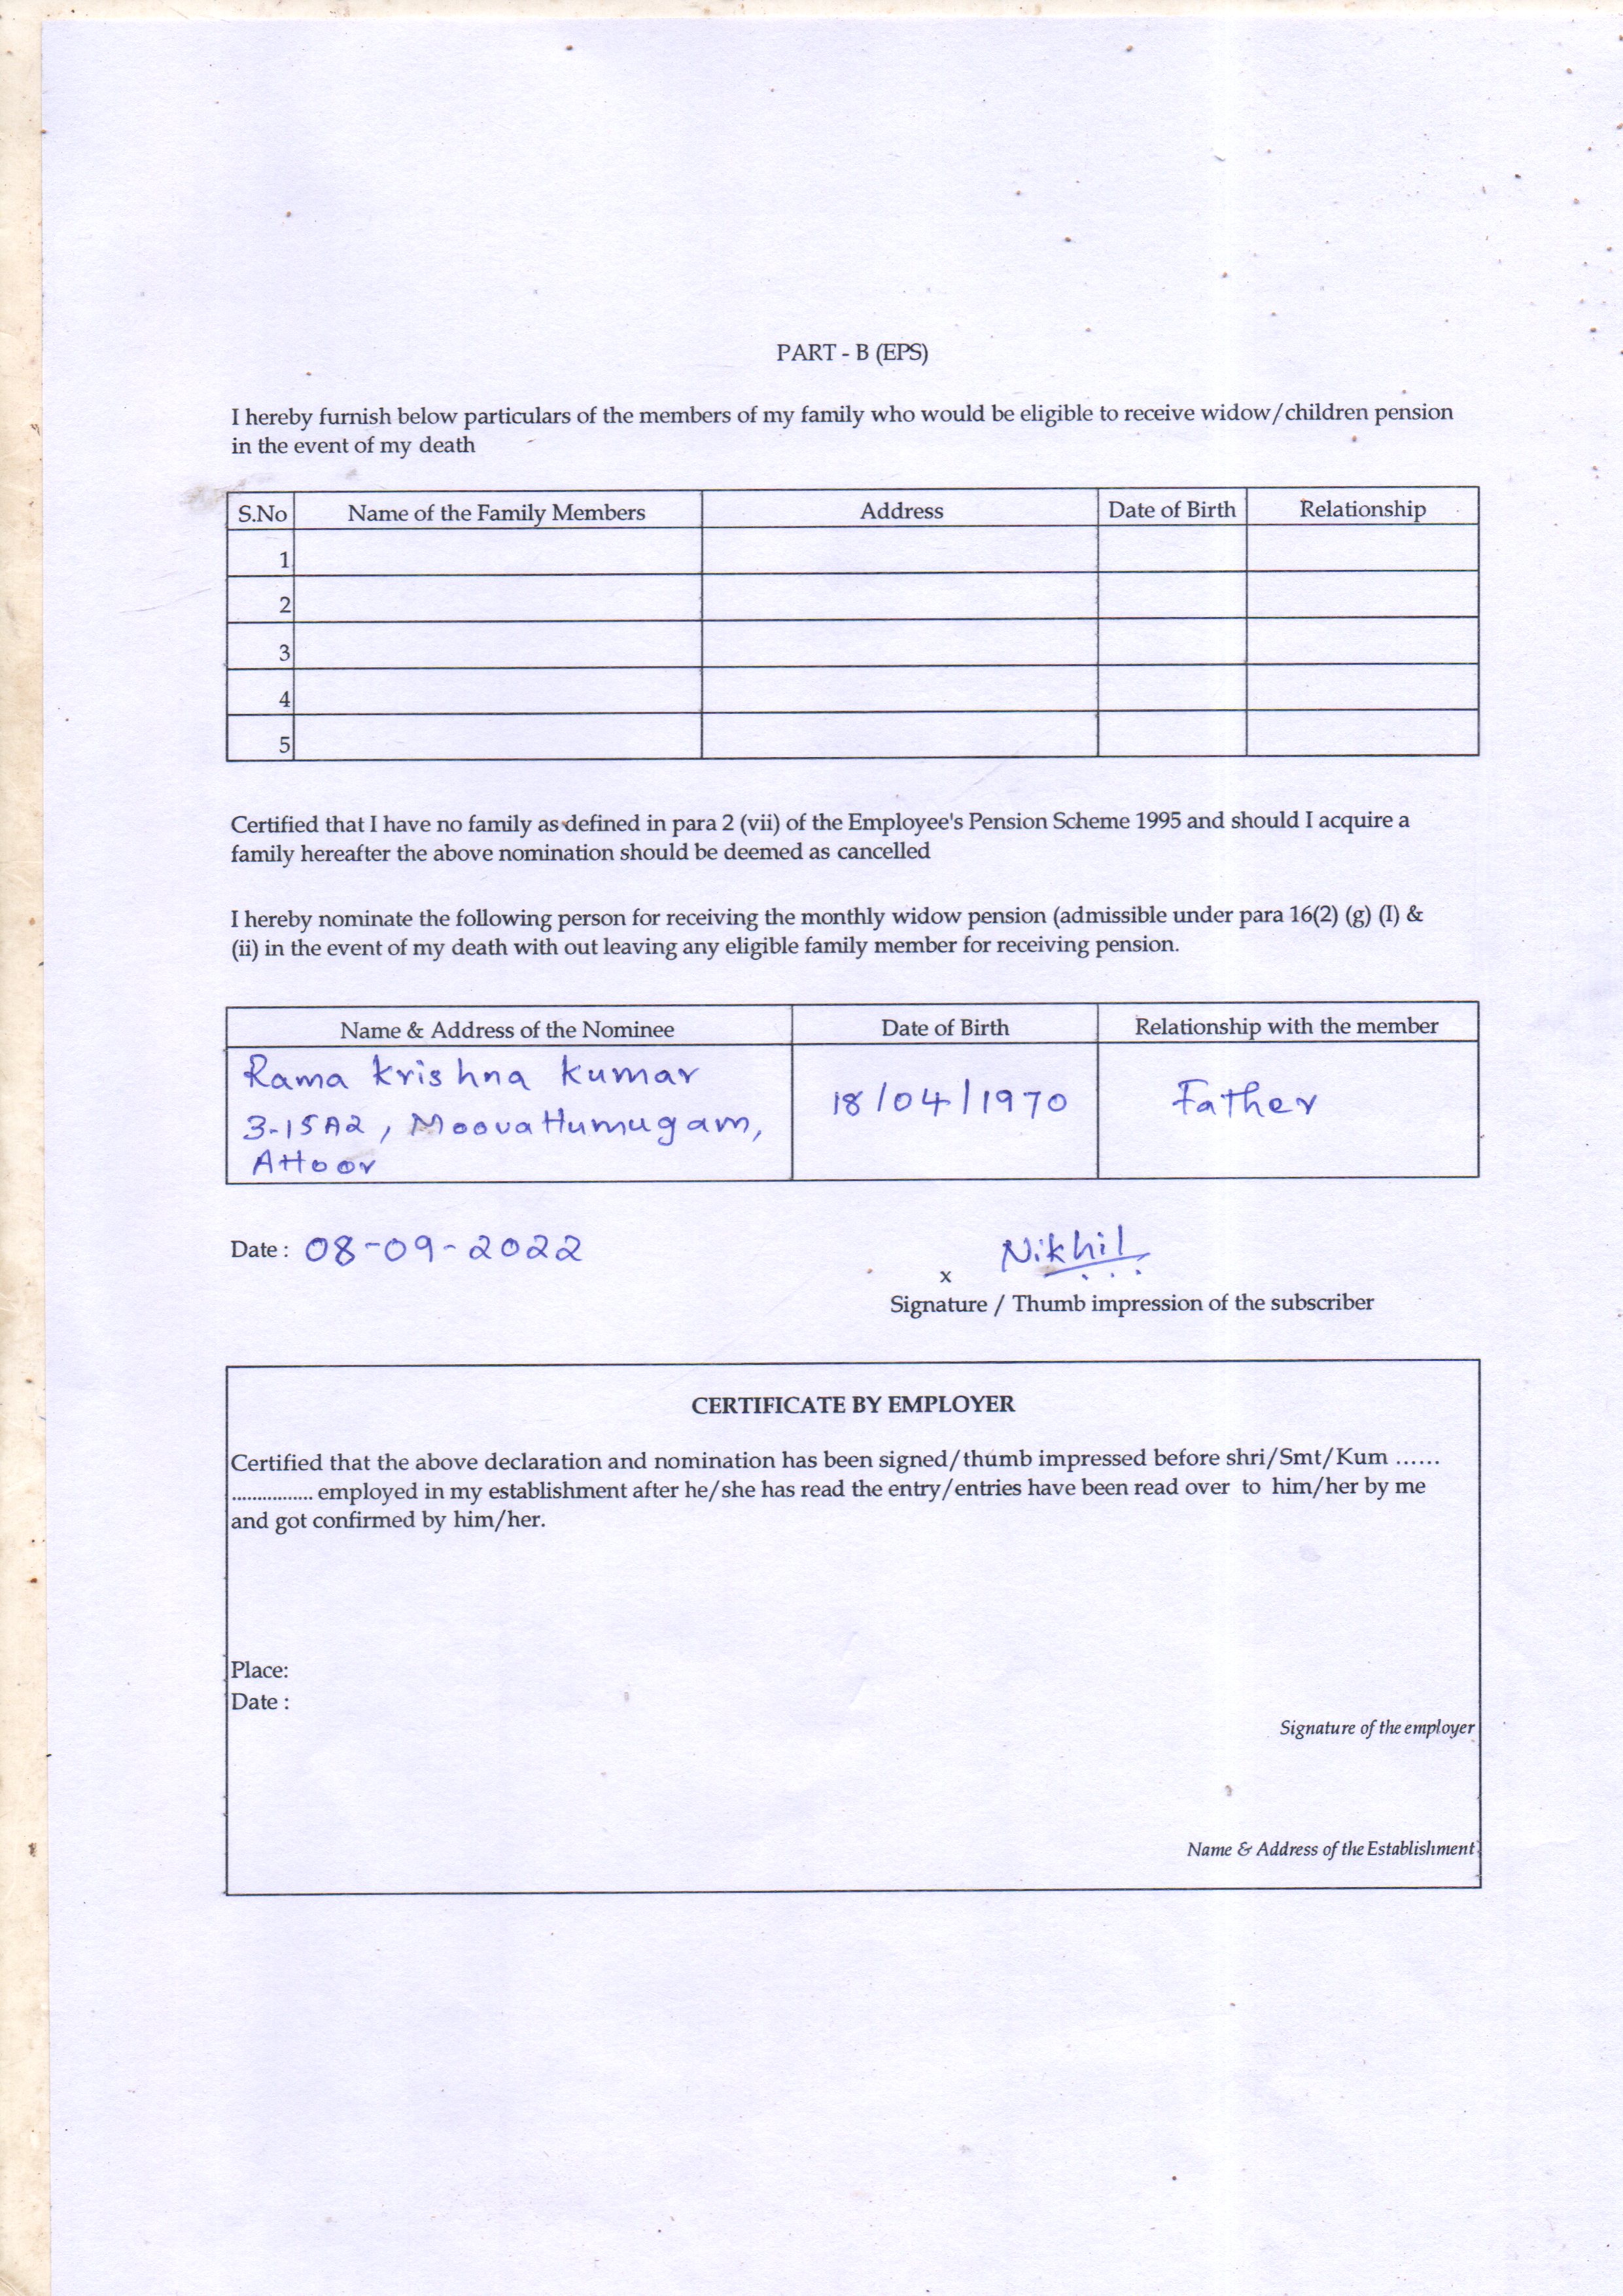 PART - B (EPS)
I hereby furnish below particulars of the members of my family who would be eligible to receive widow/children pension
in the event of my death
S.No Name of the Family Members Address Date of Birth Relationship
1
2
3
4
5
Certified that I have no family as defined in para 2 (vii) of the Employee's Pension Scheme 1995 and should I acquire a
family hereafter the above nomination should be deemed as cancelled
I hereby nominate the following person for receiving the monthly widow pension (admissible under para 16(2) (g) (I) &
(ii) in the event of my death with out leaving any eligible family member for receiving pension.
Name & Address of the Nominee Date of Birth Relationship with the member
Rama Krishna Kumar
18/04/1970 Father
3-15A2, Moovattumugam,
Attoor
Date : 08-09-2022 Nikhil
x
Signature / Thumb impression of the subscriber
CERTIFICATE BY EMPLOYER
Certified that the above declaration and nomination has been signed/thumb impressed before shri/Smt/Kum ......
................ employed in my establishment after he/she has read the entry/entries have been read over to him/her by me
and got confirmed by him/her.
Place:
Date :
Signature of the employer
Name & Address of the Establishment